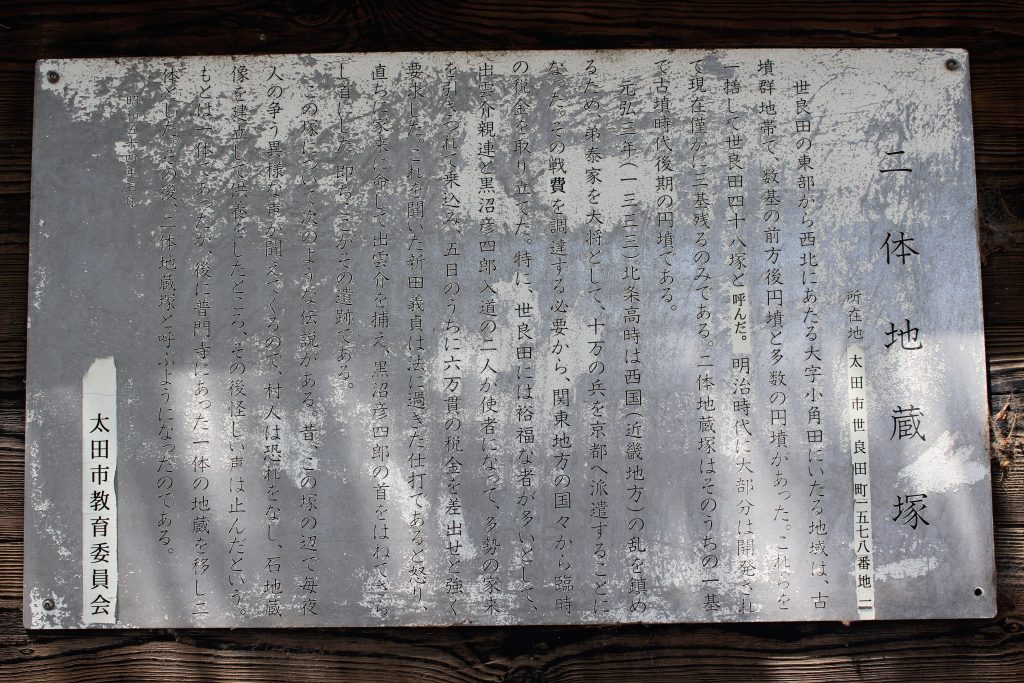 二体地蔵塚
所在地 太田市世良田町一五七八番地二
世良田の東部から西北にあたる大字小角田にいたる地域は、古
墳群地帯で、数基の前方後円墳と多数の円墳があった。これらを
一括して世良田四十八塚と呼んだ。明治時代に大部分は開発され
て現在僅かに三基残るのみである。二体地蔵塚はそのうちの一基
で古墳時代後期の円墳である。
元弘三年(一三三三)北条高時は西国(近畿地方)の乱を鎮め
るため、弟泰家を大将として、十万の兵を京都へ派遣することに
なった。その戦費を調達する必要から、関東地方の国々から臨時
の税金を取り立てた。特に、世良田には裕福な者が多いとして、
出雲介親連と黒沼彦四郎入道の二人が使者になって、多勢の家来
を引きつれて乗込み、五日のうちに六万貫の税金を差出せと強く
要求した。これを聞いた新田義貞は法に過ぎた仕打であると怒り、
直ちに家来に命じて出雲介を捕え、黒沼彦四郎の首をはねてさら
し首にした。即ちここがその遺跡である。
この塚について次のような伝説がある。昔、この塚の辺で毎夜
人の争う異様な声が聞えてくるので、村人は恐れをなし、石地蔵
像を建立して供養をしたところ、その後怪しい声は止んだという。
もとは一体であったが、後に普門寺にあった一体の地蔵を移し二
体とした。その後、二体地蔵塚と呼ぶようになったのである。
昭和五十四年三月
太田市教育委員会